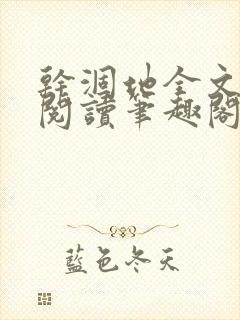 幹涸地全文
閱讀筆趣閣
藍色冬天